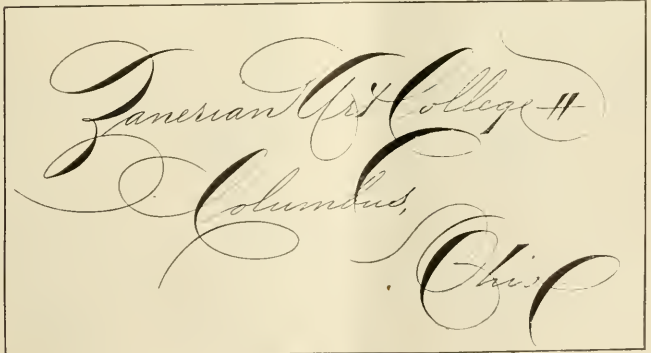 Zanerian Art College
Columbus,
Ohio